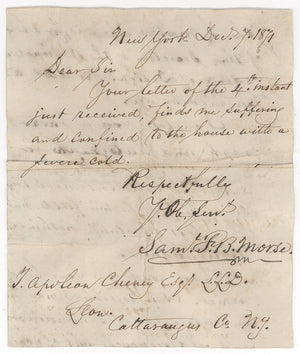 New York Dec. 7. 1871
Dear Sir
Your letter of the 4th instant
just received finds me suffering
and confined to the house with a
severe cold.
Respectfully
Yr. Ob. Servt.
Saml. F. B. Morse.
T. Apoleon Cheney Esqr. LL.D.
Leon.
Cattaraugus Co N.Y.